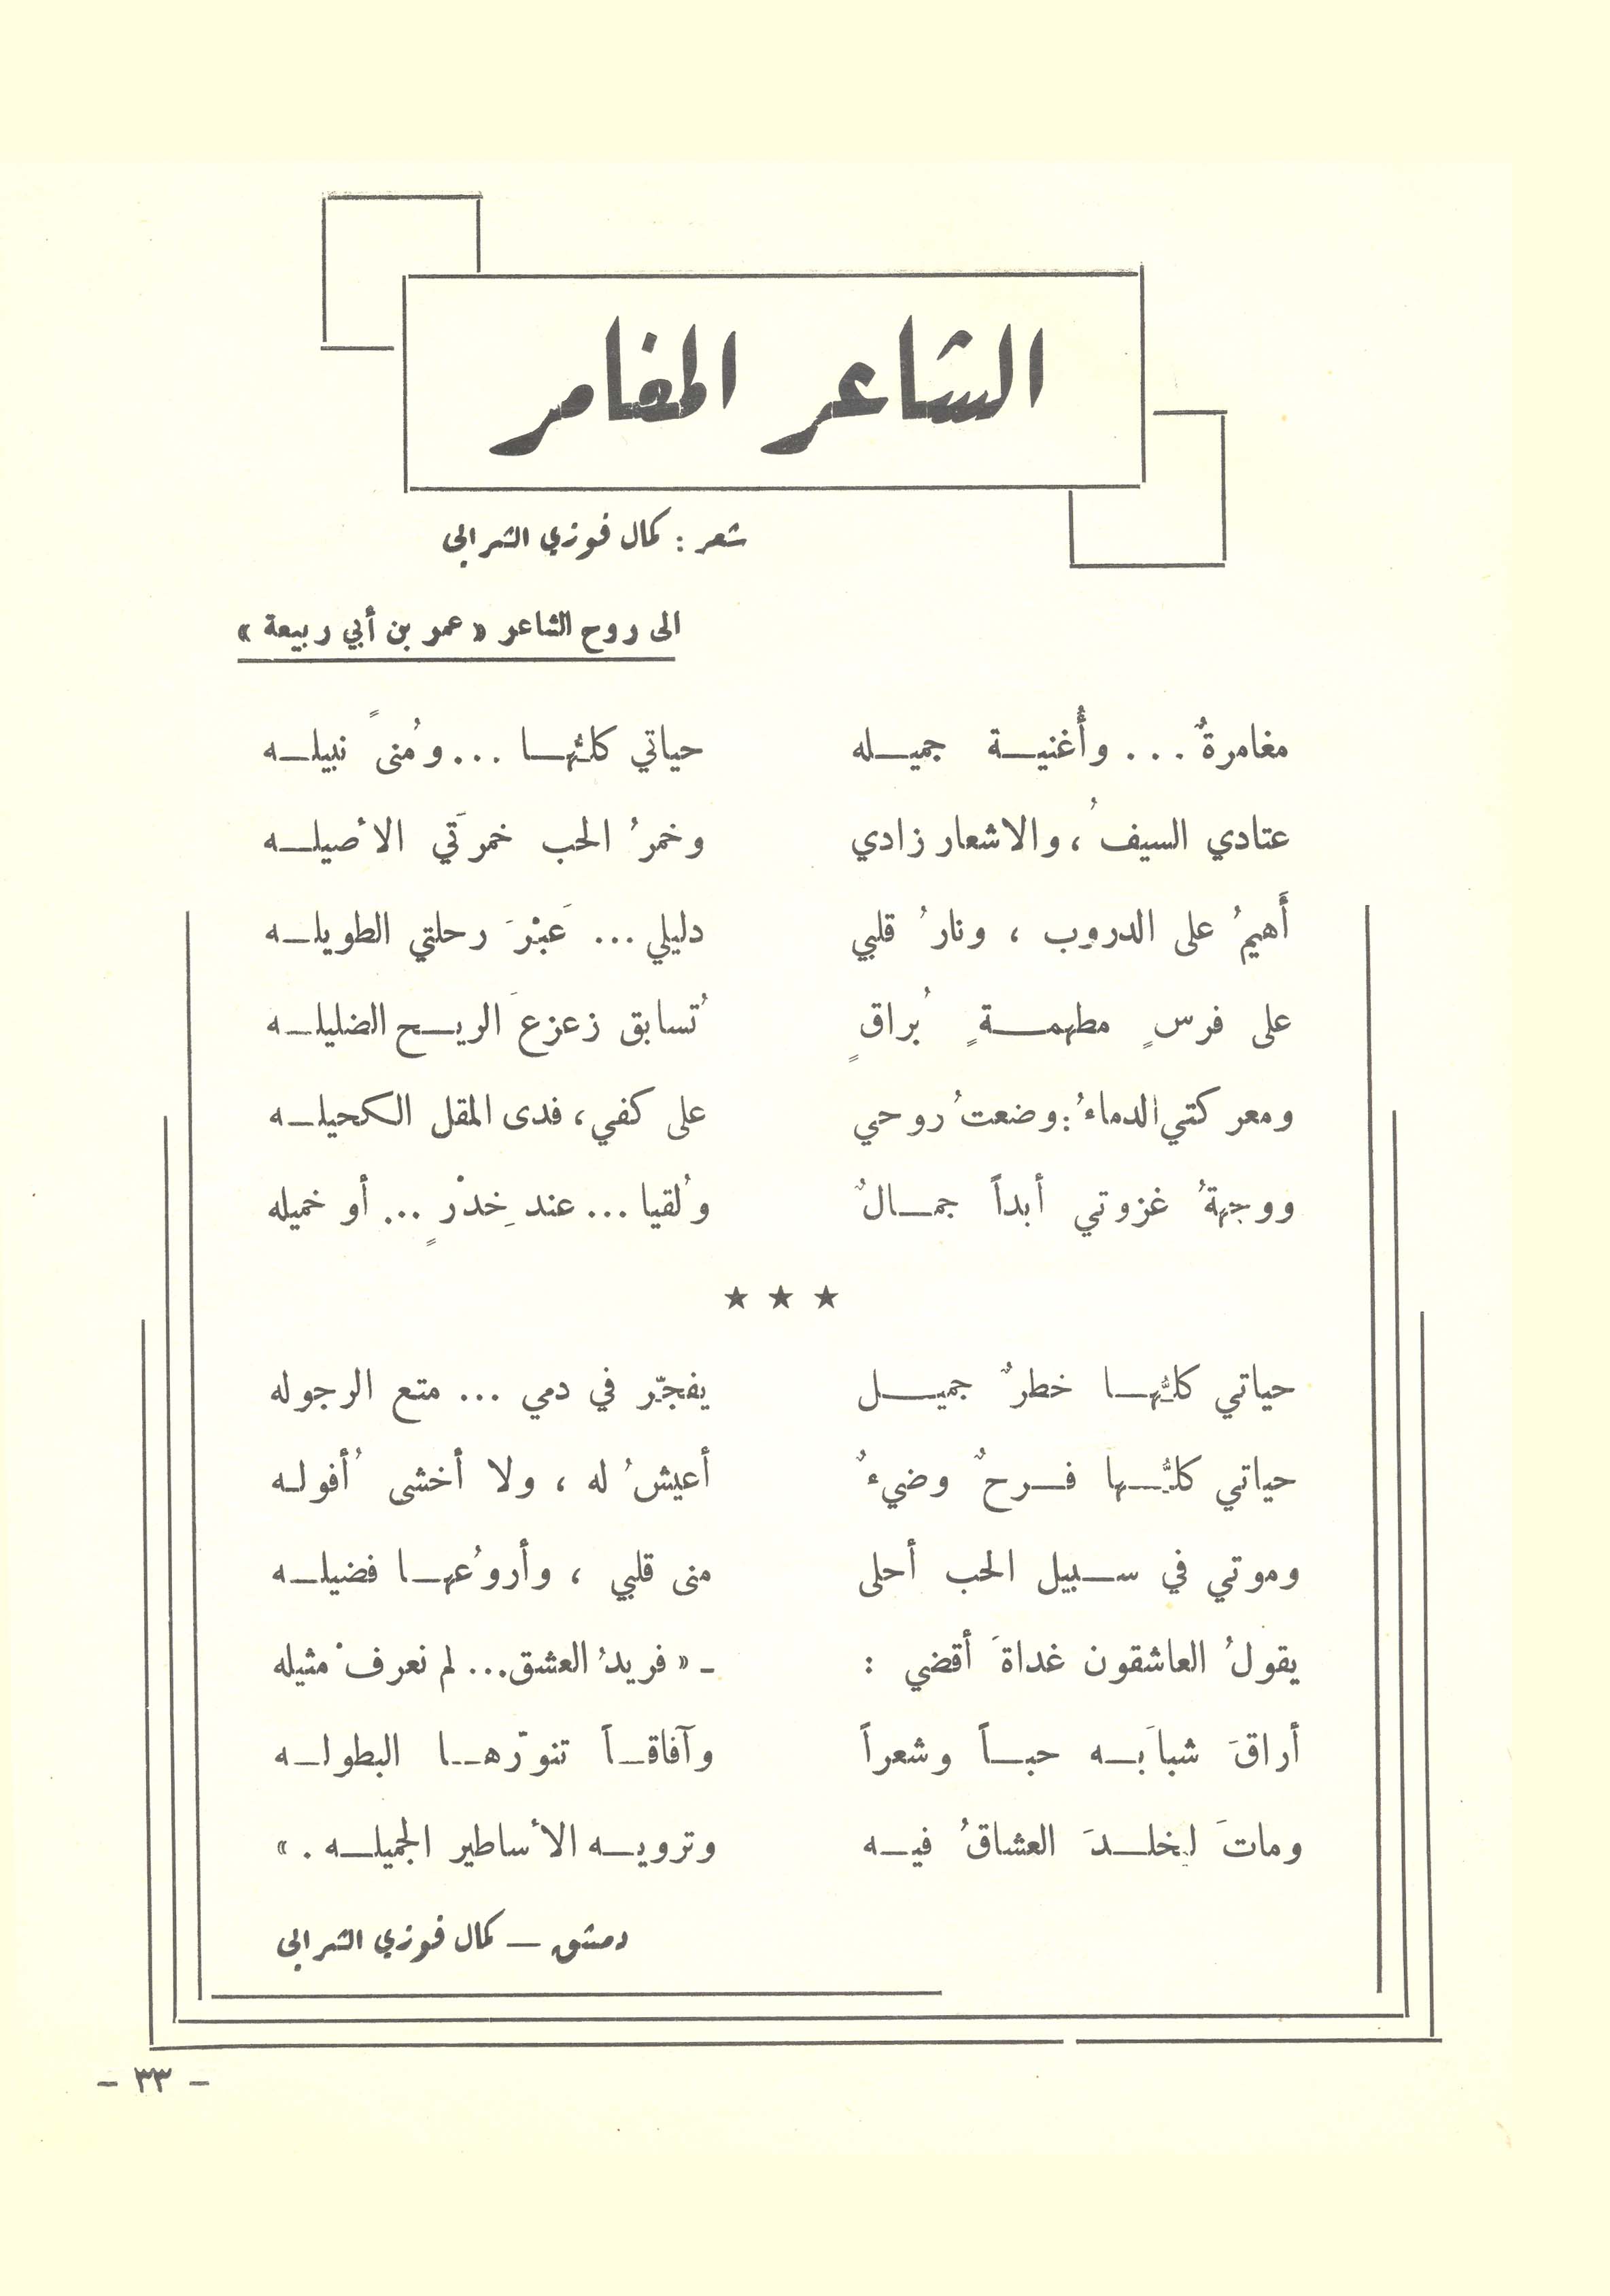 الشاعر المغامر
شعر : كمال فوزي الشرابي
الى روح الشاعر « عمر بن أبي ربيعة »
مغامرةٌ . . . وأُغنيـــة جميـــله حياتي كلـُّهـــا . . . ومُنىً نبيلـــه
عتادي السيفُ ، والاشعار زادي وخمرُ الحب خمرتَي الأصيلـــه
أَهيمُ على الدروب ، ونارُ قلبي دليلي ... عَبْرَ رحلتي الطويلـــه
على فرسٍ مطهمـــةٍ بُراقٍ تُسابق زعزعَ الريـــح الضليلـــه
ومعركتي الدماءُ : وضعتُ روحي على كفي ، فدى المقل الكحيلـــه
ووجهةُ غزوتي أبداً جمـــالٌ ولُقيا ... عند خِدْرٍ ... أو خميله
★ ★ ★
حياتي كلـُّهـــا خطرٌ جميـــل يفجّر في دمي ... متع الرجوله
حياتي كلـُّـــها فـــرحٌ وضيءٌ أعيشُ له ، ولا أخشى أُفولـه
وموتي في ســـبيل الحب أحلى منى قلبي ، وأروعُهـــا فضيلـــه
يقولُ العاشقون غداةَ أقضي : ـ « فريدُ العشق... لم نعرفْ مثيله
أراقَ شبابَـــه حبـــاً وشعراً وآفاقـــاً تنوّرهـــا البطولـــه
وماتَ ليخلـــدَ العشاقُ فيـــه وترويـــه الأساطير الجميلـــه . »
دمشق — كمال فوزي الشرابي
- ٣٣ -